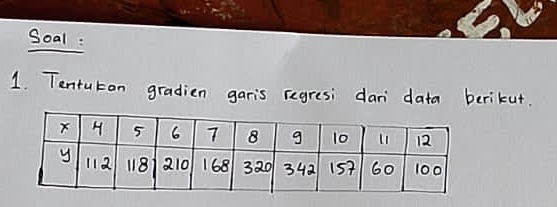 Soal :
1. Tentukan gradien garis regresi dari data berikut.
x 4 5 6 7 8 9 10 11 12
y 112 118 210 168 320 342 157 60 100